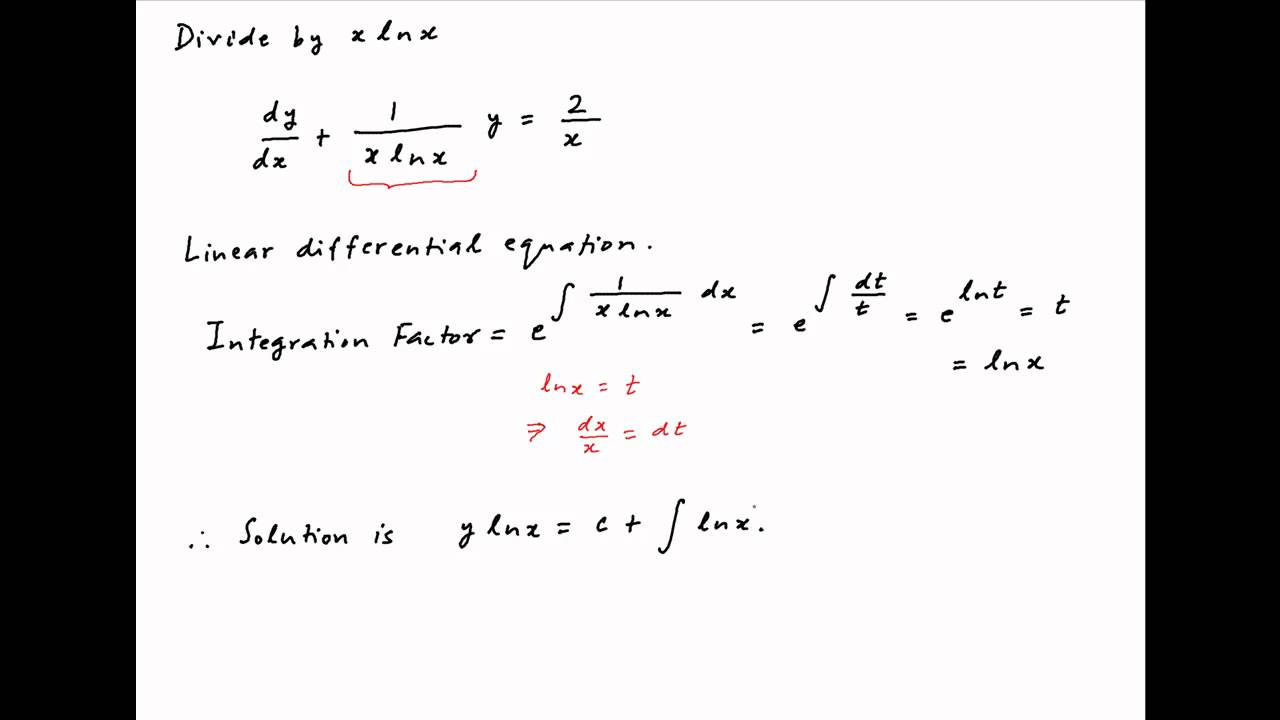 Divide by x ln x
dy/dx + 1/(x ln x) y = 2/x
Linear differential equation.
Integration Factor = e^(∫ 1/(x ln x) dx) = e^(∫ dt/t) = e^(ln t) = t
= ln x
ln x = t
⇒ dx/x = dt
∴ Solution is y ln x = c + ∫ ln x .